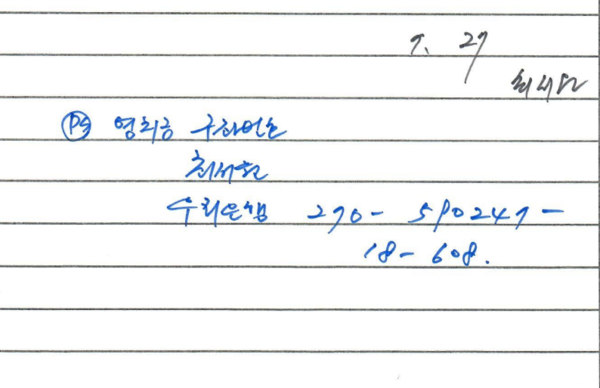 7. 27
최서원
PS 영치금 구좌번호
최서원
우리은행 270-590247-
18-608.